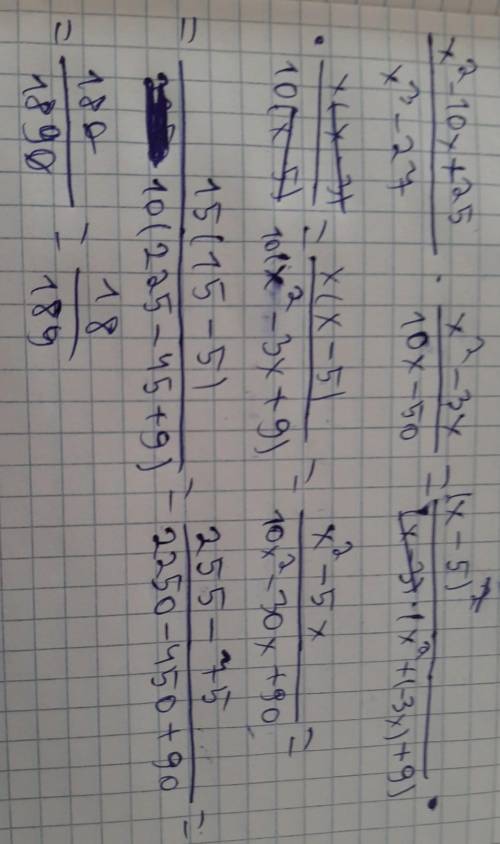 x² - 10x + 25 / x³ - 27 · x² - 3x / 10x - 50 = (x - 5)² / (x - 3) · (x² + (-3x) + 9) ·
· x(x - 3) / 10(x - 5) = x(x - 5) / 10(x² - 3x + 9) = x² - 5x / 10x² - 30x + 90 =
= 15(15 - 5) / 10(225 - 45 + 9) = 255 - 75 / 2250 - 450 + 90 =
= 180 / 1890 = 18 / 189